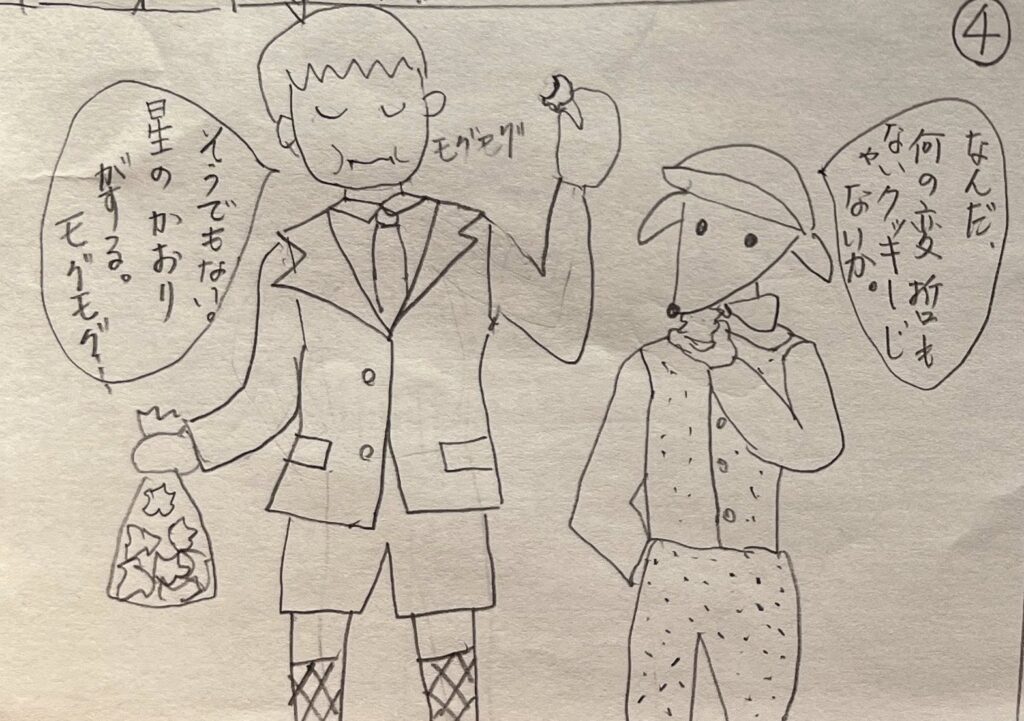 ④
なんだ、
何の変哲も
ないクッキーじ
ゃないか。
モグモグ
そうでもない。
星のかおり
がする。
モグモグ…